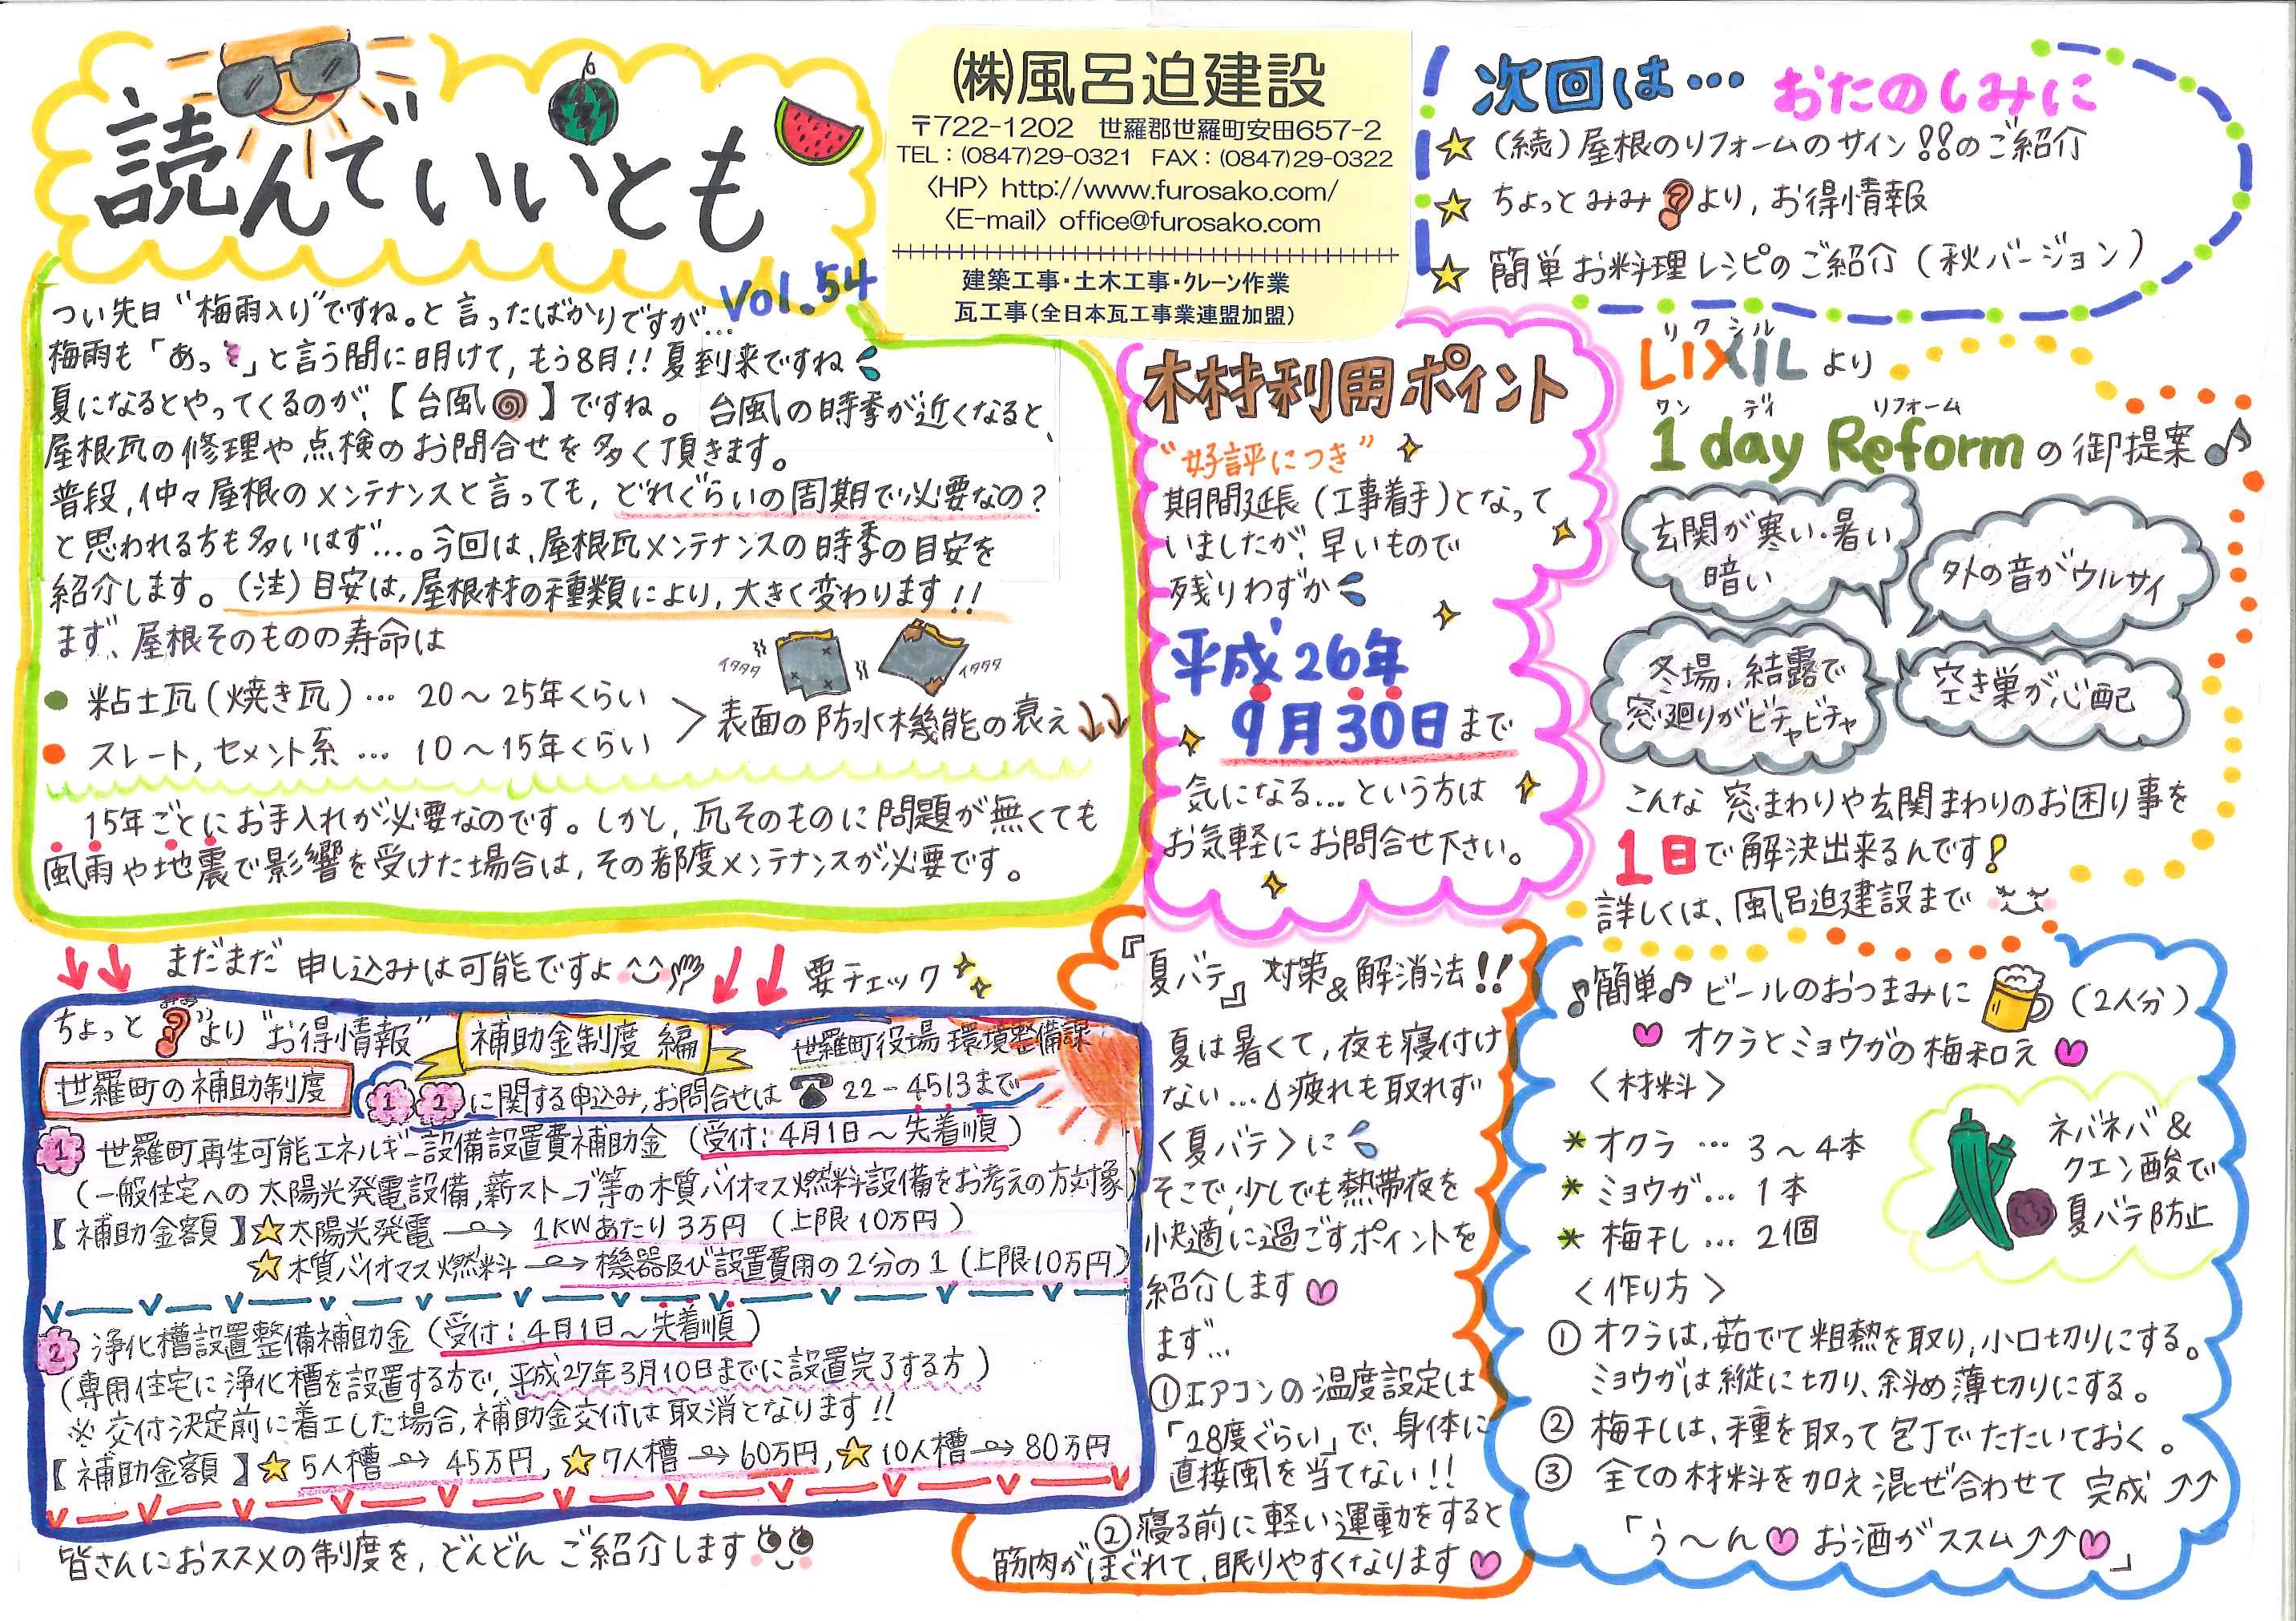 読んでいいとも
Vol.54
㈱風呂迫建設
〒722-1202 世羅郡世羅町安田657-2
TEL:(0847)29-0321 FAX:(0847)29-0322
〈HP〉http://www.furosako.com/
〈E-mail〉office@furosako.com
建築工事・土木工事・クレーン作業
瓦工事(全日本瓦工事業連盟加盟)
次回は… おたのしみに
☆(続)屋根のリフォームのサイン!!のご紹介
☆ちょっとみみより,お得情報
☆簡単お料理レシピのご紹介(秋バージョン)
つい先日"梅雨入り"ですね。と言ったばかりですが…
梅雨も「あっそ」と言う間に明けて,もう8月!!夏到来ですね
夏になるとやってくるのが、【台風】ですね。台風の時季が近くなると、
屋根瓦の修理や点検のお問合せを多く頂きます。
普段,仲々屋根のメンテナンスと言っても,どれぐらいの周期で必要なの?
と思われる方も多いはず…。今回は、屋根瓦メンテナンスの時季の目安を
紹介します。(注)目安は,屋根材の種類により,大きく変わります!!
まず、屋根そのものの寿命は
イタタタ
イタタタ
●粘土瓦(焼き瓦)… 20〜25年くらい
●スレート,セメント系… 10〜15年くらい
>表面の防水機能の衰え↓↓
15年ごとにお手入れが必要なのです。しかし,瓦そのものに問題が無くても
風雨や地震で影響を受けた場合は,その都度メンテナンスが必要です。
木材利用ポイント
"好評につき"
期間延長(工事着手)となって
いましたが、早いもので
残りわずか
平成26年
9月30日まで
気になる…という方は
お気軽にお問合せ下さい。
リクシル
LIXILより
ワン デイ リフォーム
1 day Reformの御提案♪
玄関が寒い・暑い
暗い
外の音がウルサイ
冬場,結露で
窓廻りがビチャビチャ
空き巣が心配
こんな 窓まわりや玄関まわりのお困り事を
1日で解決出来るんです!
詳しくは、風呂迫建設まで
↓↓ まだまだ申し込みは可能ですよ ↓↓ 要チェック
ちょっと みみより"お得情報" 補助金制度 編 世羅町役場 環境整備課
世羅町の補助制度 1 2 に関する申込み,お問合せは☎22-4513まで
1 世羅町再生可能エネルギー設備設置費補助金(受付:4月1日〜先着順)
(一般住宅への太陽光発電設備,薪ストーブ等の木質バイオマス燃料設備をお考えの方対象)
【補助金額】☆太陽光発電→1KWあたり3万円(上限10万円)
☆木質バイオマス燃料→機器及び設置費用の2分の1(上限10万円)
2 浄化槽設置整備補助金(受付:4月1日〜先着順)
(専用住宅に浄化槽を設置する方で,平成27年3月10日までに設置完了する方)
※交付決定前に着工した場合,補助金交付は取消となります!!
【補助金額】☆5人槽→45万円,☆7人槽→60万円,☆10人槽→80万円
皆さんにおススメの制度を,どんどんご紹介します
『夏バテ』対策&解消法!!
夏は暑くて,夜も寝付け
ない…疲れも取れず
〈夏バテ〉に
そこで,少しでも熱帯夜を
快適に過ごすポイントを
紹介します♡
まず…
①エアコンの温度設定は
「28度ぐらい」で、身体に
直接風を当てない!!
②寝る前に軽い運動をすると
筋肉がほぐれて,眠りやすくなります♡
♪簡単♪ビールのおつまみに(2人分)
♥オクラとミョウガの梅和え♥
〈材料〉
*オクラ…3〜4本
*ミョウガ…1本
*梅干し…2個
ネバネバ&
クエン酸で
夏バテ防止
〈作り方〉
①オクラは,茹でて粗熱を取り,小口切りにする。
ミョウガは縦に切り、斜め薄切りにする。
②梅干しは、種を取って包丁でたたいておく。
③全ての材料を加え混ぜ合わせて完成⤴⤴
「う〜ん♡お酒がススム⤴⤴♡」